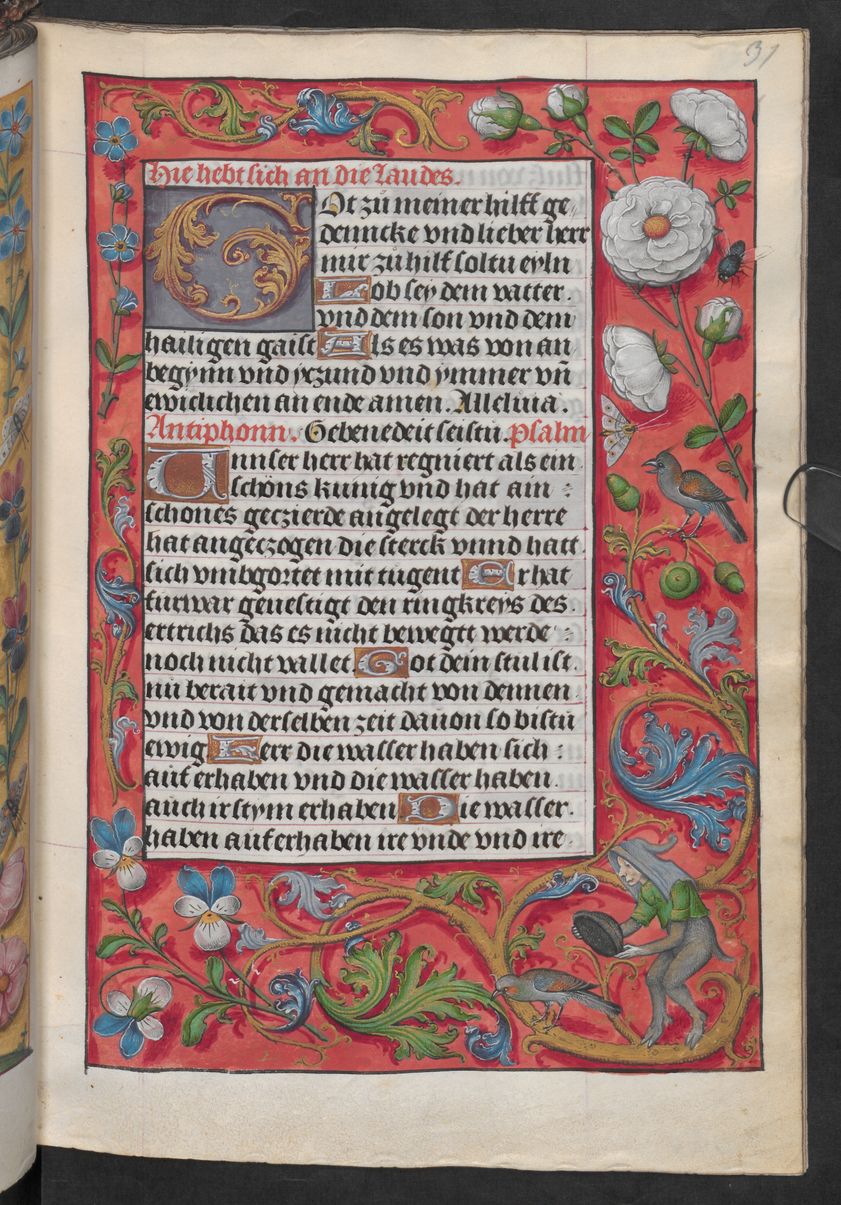 31
Hie hebt sich an die Laudes.
Got zů meiner hilff ge-
denncke vnd lieber herr
mir zů hilf soltu eyln
Lob sey dem vatter.
vnd dem son vnd dem
hailigen gaist Als es was von an
begynn vnd yezund vnd ymmer vn̄
ewichchen an ende amen. Alleluia.
Antiphonn. Gebenedeit seistu. Psalm
Unnser herr hat regniert als ein
schöns kunig vnd hat ain :
schones geczierde angelegt der herre
hat angeczogen die sterck vnnd hatt
sich vmbgortet mit tugent Er hat
furwar genestigt den ringkreys des.
ertrichs das es nicht bewegtt werde :
noch nicht vallet Got dein stul ist.
nu berait vnd gemacht von dennen
vnd von derselben zeit dauon so bistu
ewig Herr die wasser haben sich :
auf erhaben vnd die wasser haben.
auch ir stym erhaben Die wasser.
haben auf erhaben ire vnde vnd ire.